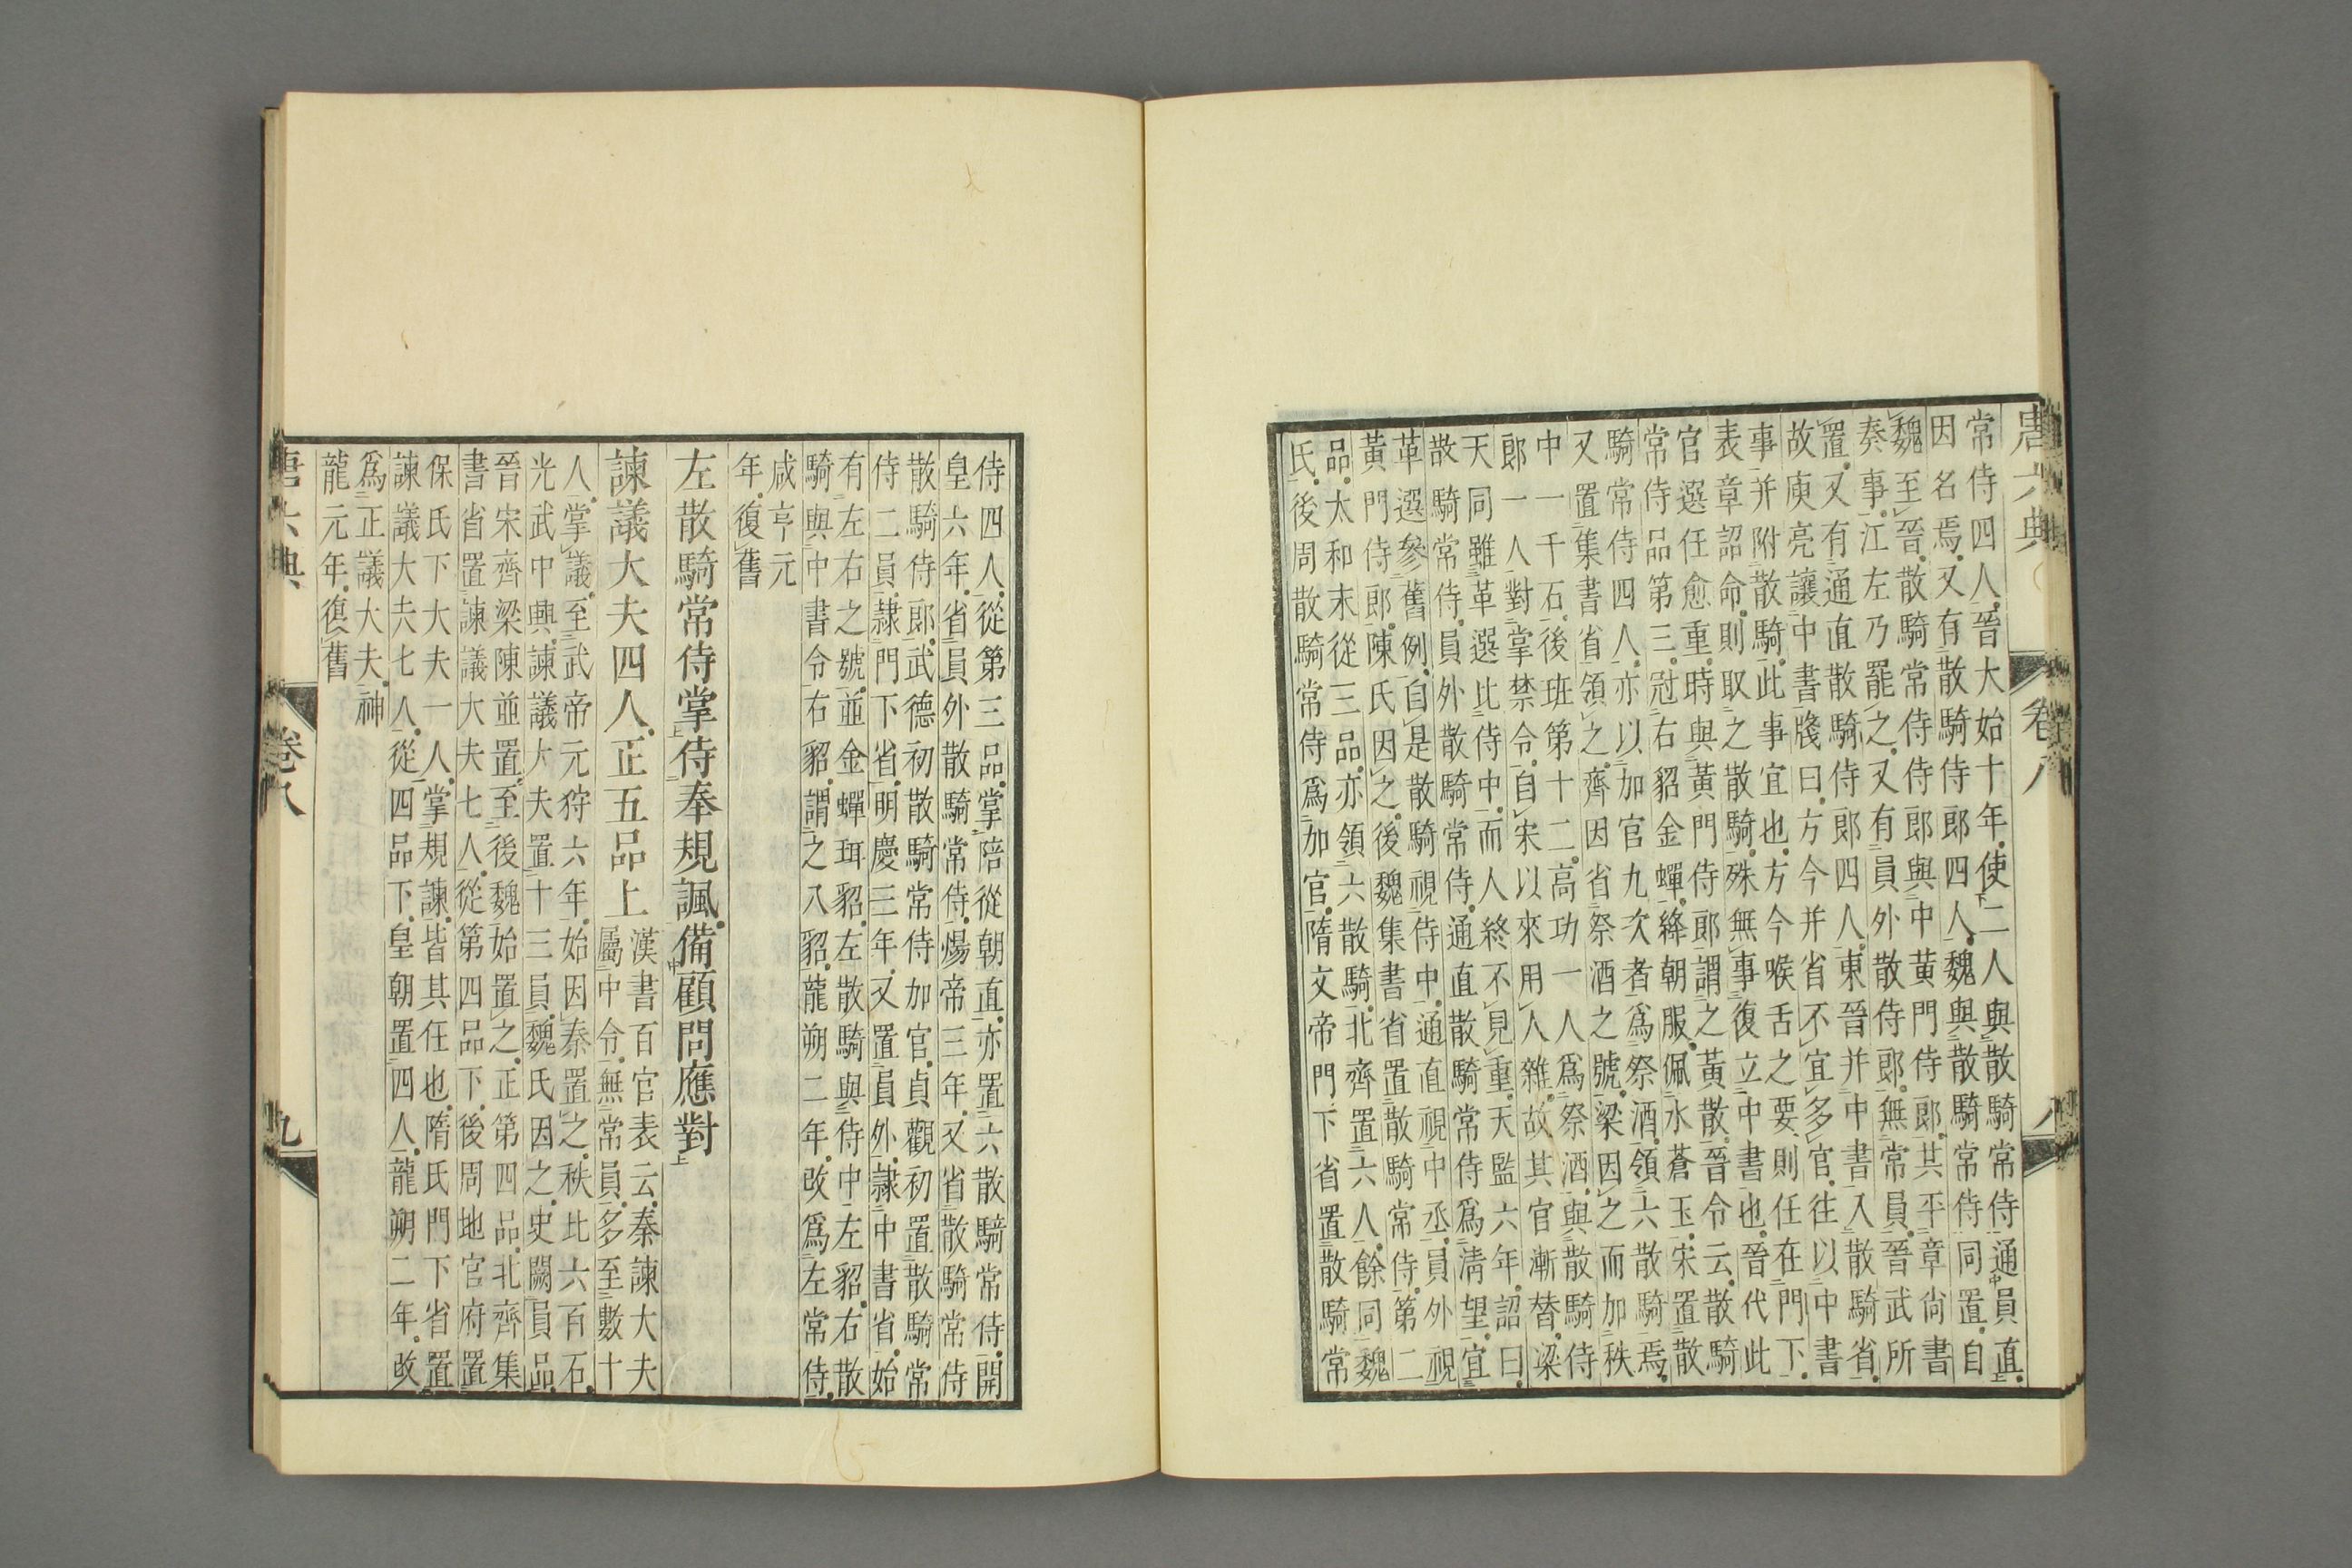 唐六典 卷八 八
常侍四人晉大始十年使二人與散騎常侍通員直
因名焉又有散騎侍郎四人魏與散騎常侍同置自
魏至晉散騎常侍侍郎與中黃門侍郎共平章尚書
奏事江左乃罷之又有員外散侍郎無常員晉武所
置又有通直散騎侍郎四人東晉并中書入散騎省
故庾亮讓中書牋曰方今并省不宜多官往以中書
事并附散騎此事宜也方今喉舌之要則任在門下
表章詔命則取之散騎殊無事復立中書也晉代此
官選任愈重時與黃門侍郎謂之黃散晉令云散騎
常侍品第三冠右貂金蟬絳朝服佩水蒼玉宋置散
騎常侍四人亦以加官九次者爲祭酒領六散騎焉
又置集書省領之齊因省祭酒之號梁因之而加秩
中一千石後班第十二高功一人爲祭酒與散騎侍
郎一人對掌禁令自宋以來用人雜故其官漸替梁
天同雖革選比侍中而人終不見重天監六年詔曰
散騎常侍員外散騎常侍通直散騎常侍爲清望宜
革選參舊例自是散騎視侍中通直視中丞員外視
黃門侍郎陳氏因之後魏集書省置散騎常侍第二
品太和末從三品亦領六散騎北齊置六人餘同魏
氏後周散騎常侍爲加官隋文帝門下省置散騎常
侍四人從第三品掌陪從朝直亦置六散騎常侍開
皇六年省員外散騎常侍煬帝三年又省散騎常侍
散騎侍郎武德初散騎常侍加官貞觀初置散騎常
侍二員隷門下省明慶三年又置員外隷中書省始
有左右之號並金蟬珥貂左散騎與侍中左貂右散
騎與中書令右貂謂之八貂龍朔二年改爲左常侍
咸亨元
年復舊
左散騎常侍掌侍奉規諷備顧問應對
諫議大夫四人正五品上
漢書百官表云秦諫大夫
屬中令無常員多至數十
人掌議至武帝元狩六年始因秦置之秩比六百石
光武中興諫議大夫置十三員魏氏因之史闕員品
晉宋齊梁陳並置至後魏始置之正第四品北齊集
書省置諫議大夫七人從第四品下後周地官府置
保氏下大夫一人掌規諫皆其任也隋氏門下省置
諫議大夫七人從四品下皇朝置四人龍朔二年改
爲正議大夫神
龍元年復舊
唐六典 卷八 九